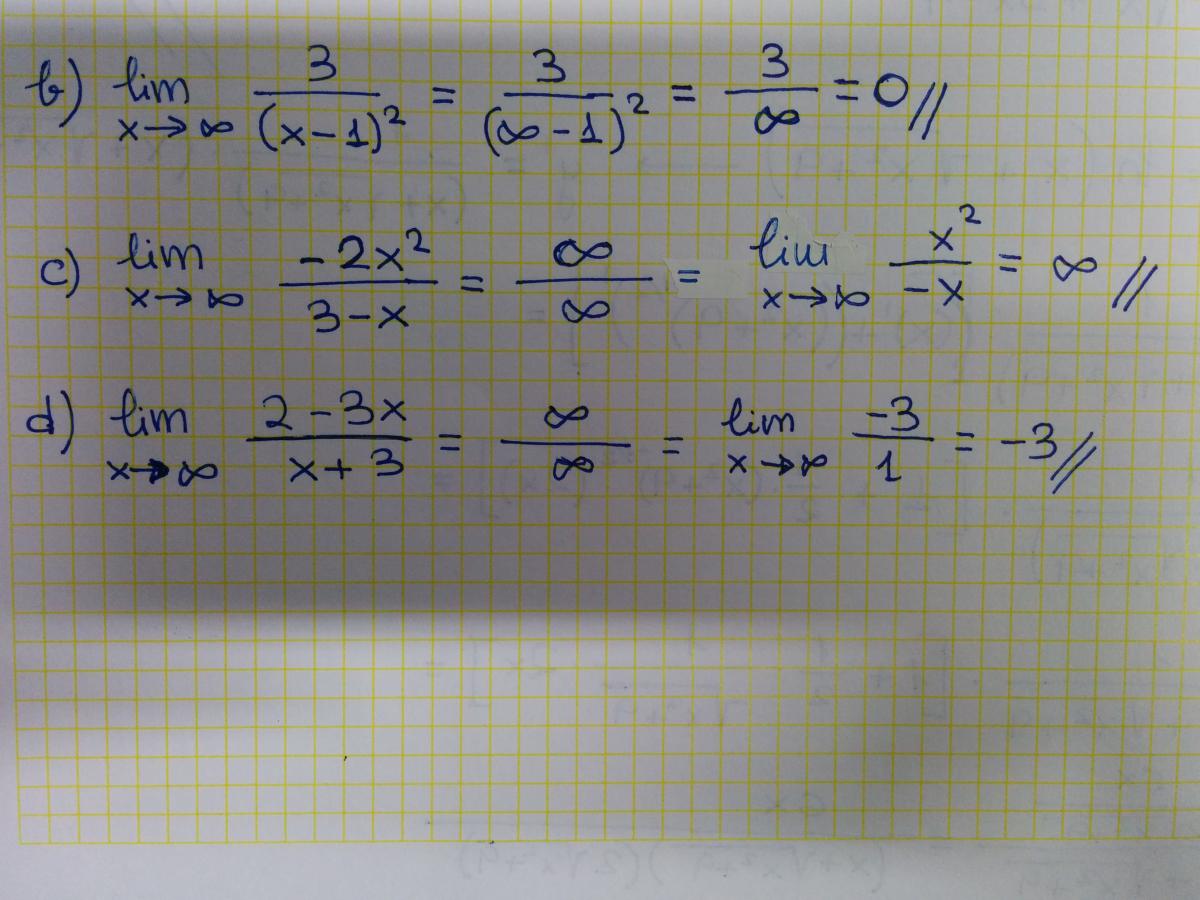 b) lim x→∞ 3/(x-1)² = 3/(∞-1)² = 3/∞ = 0//
c) lim x→∞ -2x²/3-x = ∞/∞ = lim x→∞ x²/-x = ∞//
d) lim x→∞ 2-3x/x+3 = ∞/∞ = lim x→∞ -3/1 = -3//